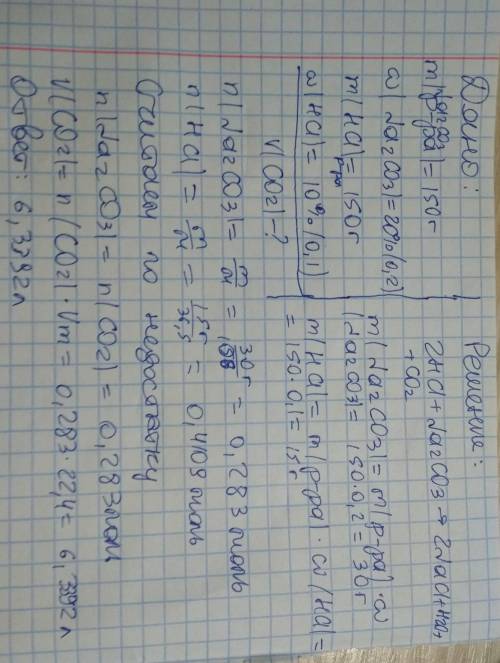 Дано:
m(Na2CO3 р-ра) = 150г
ω(Na2CO3) = 20% (0,2)
m(HCl р-ра) = 150г
ω(HCl) = 10% (0,1)
V(CO2) - ?
Решение:
2HCl + Na2CO3 → 2NaCl + H2O +
+ CO2
m(Na2CO3) = m(р-ра) · ω
(Na2CO3) = 150 · 0,2 = 30г
m(HCl) = m(р-ра) · ω(HCl) =
= 150 · 0,1 = 15г
n(Na2CO3) = m/M = 30г/106 = 0,283 моль
n(HCl) = m/M = 15г/36,5 = 0,408 моль
Считаем по недостатку
n(Na2CO3) = n(CO2) = 0,283 моль
V(CO2) = n(CO2) · Vm = 0,283 · 22,4 = 6,3392л
Ответ: 6,3392л